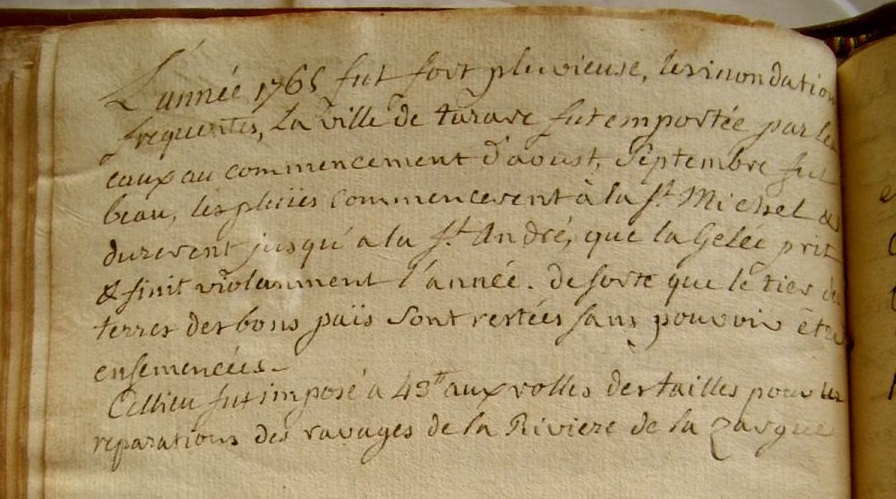 L'année 1765 fut fort pluvieuse, les inondations
frequentes, La ville de tarare fut emportée par les
eaux au commencement d'aoust, Septembre fut
beau, les pluïes commencerent à la st. Michel &
durerent jusqu'a la st. André, que la Gelée prit
& finit violamment l'année. de sorte que le tier des
terres des bons païs sont restées sans pouvoir être
ensemencées.
Cellieu fut imposé a 43tt aux rolles des tailles pour les
reparations des ravages de la Riviere de la